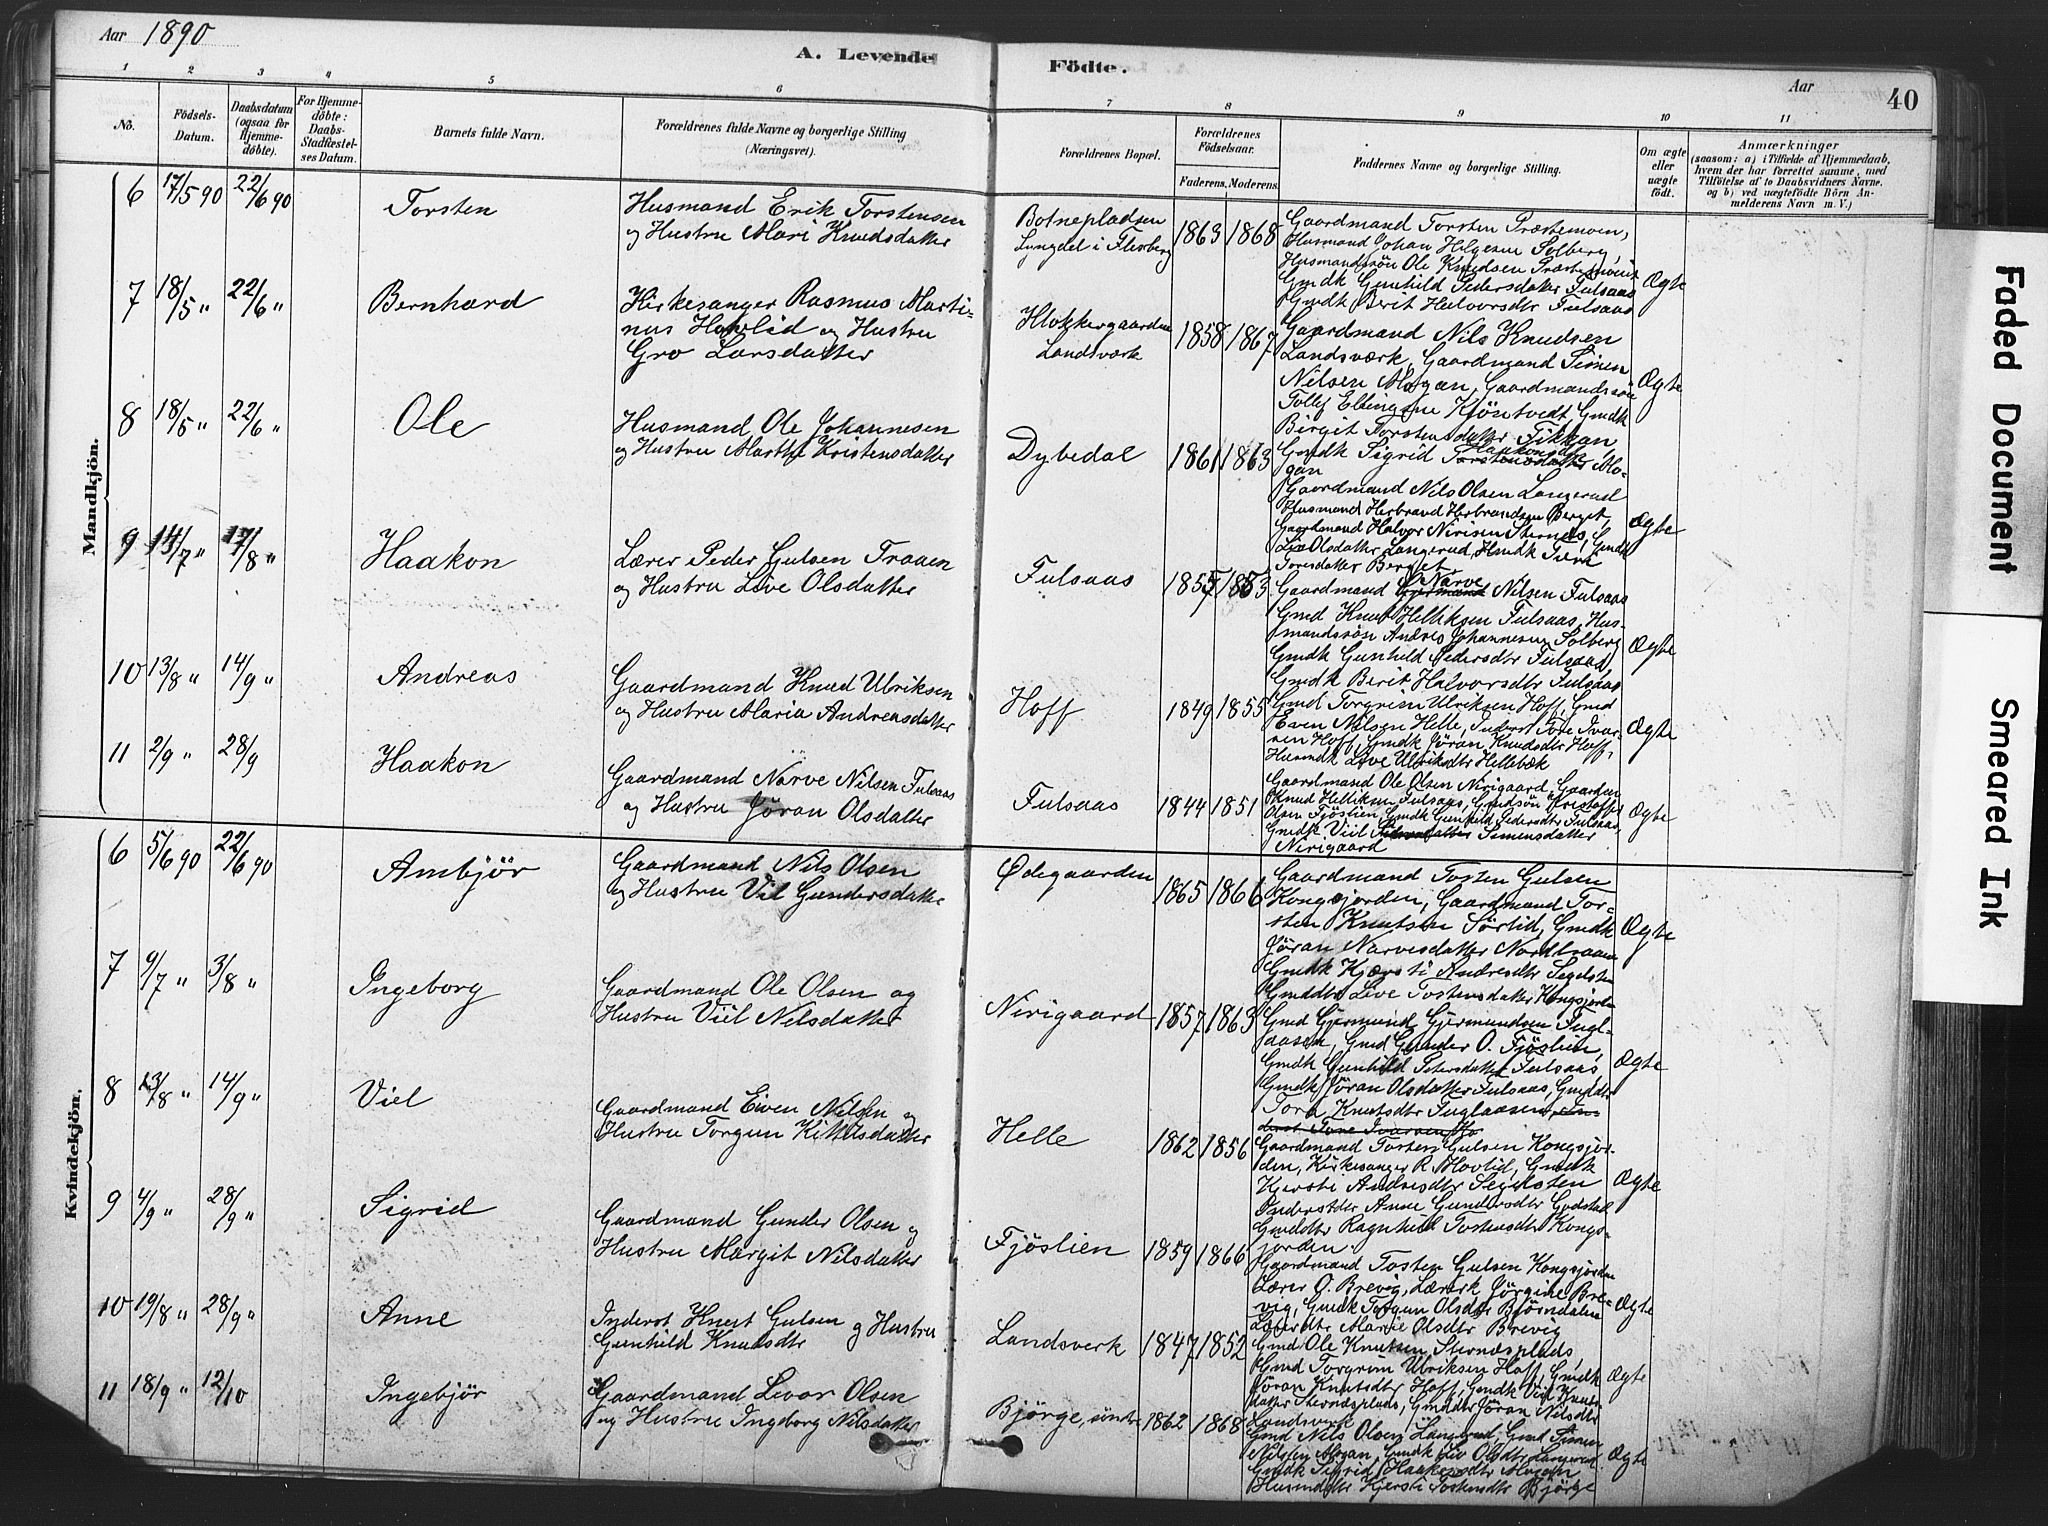 Aar 1890
A. Levende Födte.
Aar
40
1 2 3 4 5 6 7 8 9 10 11
No.
Födsels-Datum.
Daabsdatum (ogsaa for Hjemmedöbte).
For Hjemmedöbte: Daabs-Stadfæstelses Datum.
Barnets fulde Navn.
Forældrenes fulde Navne og borgerlige Stilling (Næringsvei).
Forældrenes Bopæl.
Forældrenes Födselsaar.
Faderens. Moderens.
Faddernes Navne og borgerlige Stilling.
Om ægte eller uægte födt.
Anmærkninger
(saasom: a) i Tilfælde af Hjemmedaab, hvem der har forrettet samme, med Tilföielse af to Daabsvidners Navne. og b) ved uægtefödte Börn Anmelderens Navn m. V.)
Mandkjön.
6 17/5 90 22/6 90 Torsten
Husmand Erik Torstensen
og Hustru Mari Knudsdatter
Botnepladsen
Lyngdal i Flesberg
1863 1868
Gaardmand Torsten Præstemoen,
Husmand Johan Helgesen Solberg,
Husmandssön Ole Knudsen
Gmdk Gunhild Pedersdatter Fulsaas
Gmdk Berit Halvorsdtr Fulsaas
Ægte
7 18/5 " 22/6 " Bernhard
Kirkesanger Rasmus Marti-
nus Hovlid og Hustru
Gro Larsdatter
Klokkergaarden
Landsværk
1858 1867
Gaardmand Nils Knudsen
Landsværk, Gaardmand Simen
Nilsen Mogan, Gaardmandssön
Tollef Kjöntvedt Gmdk
Birgit Torstensdatter Fikkan,
Gmdk Sigrid Haakonsdtr Mo-
gan
Ægte
8 18/5 " 22/6 " Ole
Husmand Ole Johannesen
og Hustru Marthe Kristensdatter
Dybedal
1861 1863
Gaardmand Nils Olsen Langerud
Husmand Herbrand Herbrandsen Berget,
Gaardmand Halvor Nirisen Sternes, Gmdk
Liv Olsdatter Langerud, Hmdk Turi
Toresdatter Berget
Ægte
9 14/7 " 17/8 " Haakon
Lærer Peder Gulsen Traaen
og Hustru Live Olsdatter
Fulsaas
1855 1853
Gaardmand Narve Nilsen Fulsaas
Gmd Knut Helliksen Fulsaas, Hus-
mandssön Andres Johannesen Solberg
Gmdk Gunhild Pedersdtr Fulsaas,
Gmdk Berit Halvorsdtr Fulsaas
Ægte
10 13/8 " 14/9 " Andreas
Gaardmand Knud Ulriksen
og Hustru Maria Andreasdatter
Hoff
1849 1855
Gmd Torgrim Ulriksen Hoff, Gmd
Even Nilsen Helle, Inderst Tore Ivar-
sen Hoff, Gmdk Jöran Knudsdtr Hoff,
Husmdk Live Ulriksdtr Hellebæk
Ægte
11 2/9 " 28/9 Haakon
Gaardmand Narve Nilsen Fulsaas
og Hustru Jöran Olsdatter
Fulsaas
1844 1851
Gaardmand Ole Olsen Nirigaard, Gaardm
Knud Helliksen Fulsaas, Gmdsön Kristoffer
Olsen Fjöslien, Gmdk Gunhild Pedersdtr Fulsaas,
Gmdk Viil Simensdatter
Nirigaard
Ægte
Kvindekjön.
6 5/6 90 22/6 90 Ambjör
Gaardmand Nils Olsen
og Hustru Viel Gundersdatter
Ødegaarden
1865 1866
Gaardmand Tosten Gulsen
Kongsjorden, Gaardmand Tor-
sten Knutsen Sörlid, Gmdk
Jöran Narvesdatter Nordtraaen
Gmdk Kjersti Andresdtr Segelsten
Gmddtr Live Tostensdatter Kongsjorden
Ægte
7 9/7 " 3/8 " Ingeborg
Gaardmand Ole Olsen og
Hustru Viil Nilsdatter
Nirigaard
1857 1863
Gmd Gjermund Gjermundsen Fugl-
aasen, Gmd Gunder O. Fjöslien,
Gmdk Gunhild Petersdatter Fulsaas
Gmdk Jöran Olsdatter Fulsaas, Gmddtr
Tora Knutsdtr Fuglaasen, In-
derst Tore Ivarsen Ho
Ægte
8 13/8 " 14/9 " Viel
Gaardmand Even Nilsen og
Hustru Torgun Kittilsdatter
Helle
1862 1856
Gaardmand Tosten Gulsen Kongsjor-
den, Kirkesanger R. Hovlid, Gmdk
Kjersti Andresdtr Segelsten
Inderstdtr Anne Gundersdtr
Gmddtr Ragnhild Tostensdtr Kongs-
jorden.
Ægte
9 4/9 " 28/9 " Sigrid
Gaardmand Gunder Olsen og
Hustru Margit Nilsdatter
Fjöslien
1859 1866
Gaardmand Tosten Gulsen Kongsjorden
Lærer O. Brevig, Lærerk Jörgine Bre-
vig, Gmdk Torgun Olsdtr Björndalen
Lærerdtr Marie Olsdtr Brevig
Ægte
10 19/8 " 28/9 " Anne
Inderst Knut Gulsen og Hustru
Gunhild Knutsdtr
Landsverk
1847 1852
Gmd Ole Knutsen Sternesplads,
Gmd Torgrim Ulriksen Hoff, Gmdk
Jöran Knutsdtr Hoff, Gmdk Viil Knuts-
datter Sternesplads, Gmddtr Jöran Nilsdtr
Landsverk
Ægte
11 18/9 " 12/10 Ingebjör
Gaardmand Levor Olsen
og Hustru Ingeborg Nilsdatter
Björge, söndre
1862 1868
Gmd Nils Olsen Langerud, Gmd Simen
Nilsen Mogan, Gmdk Liv Olsdtr Langerud
Gmdk Sigrid Haakensdtr Mogan
Husmddtr Kjersti Tostensdtr Björge
Ægte
Faded Document
Smeared Ink